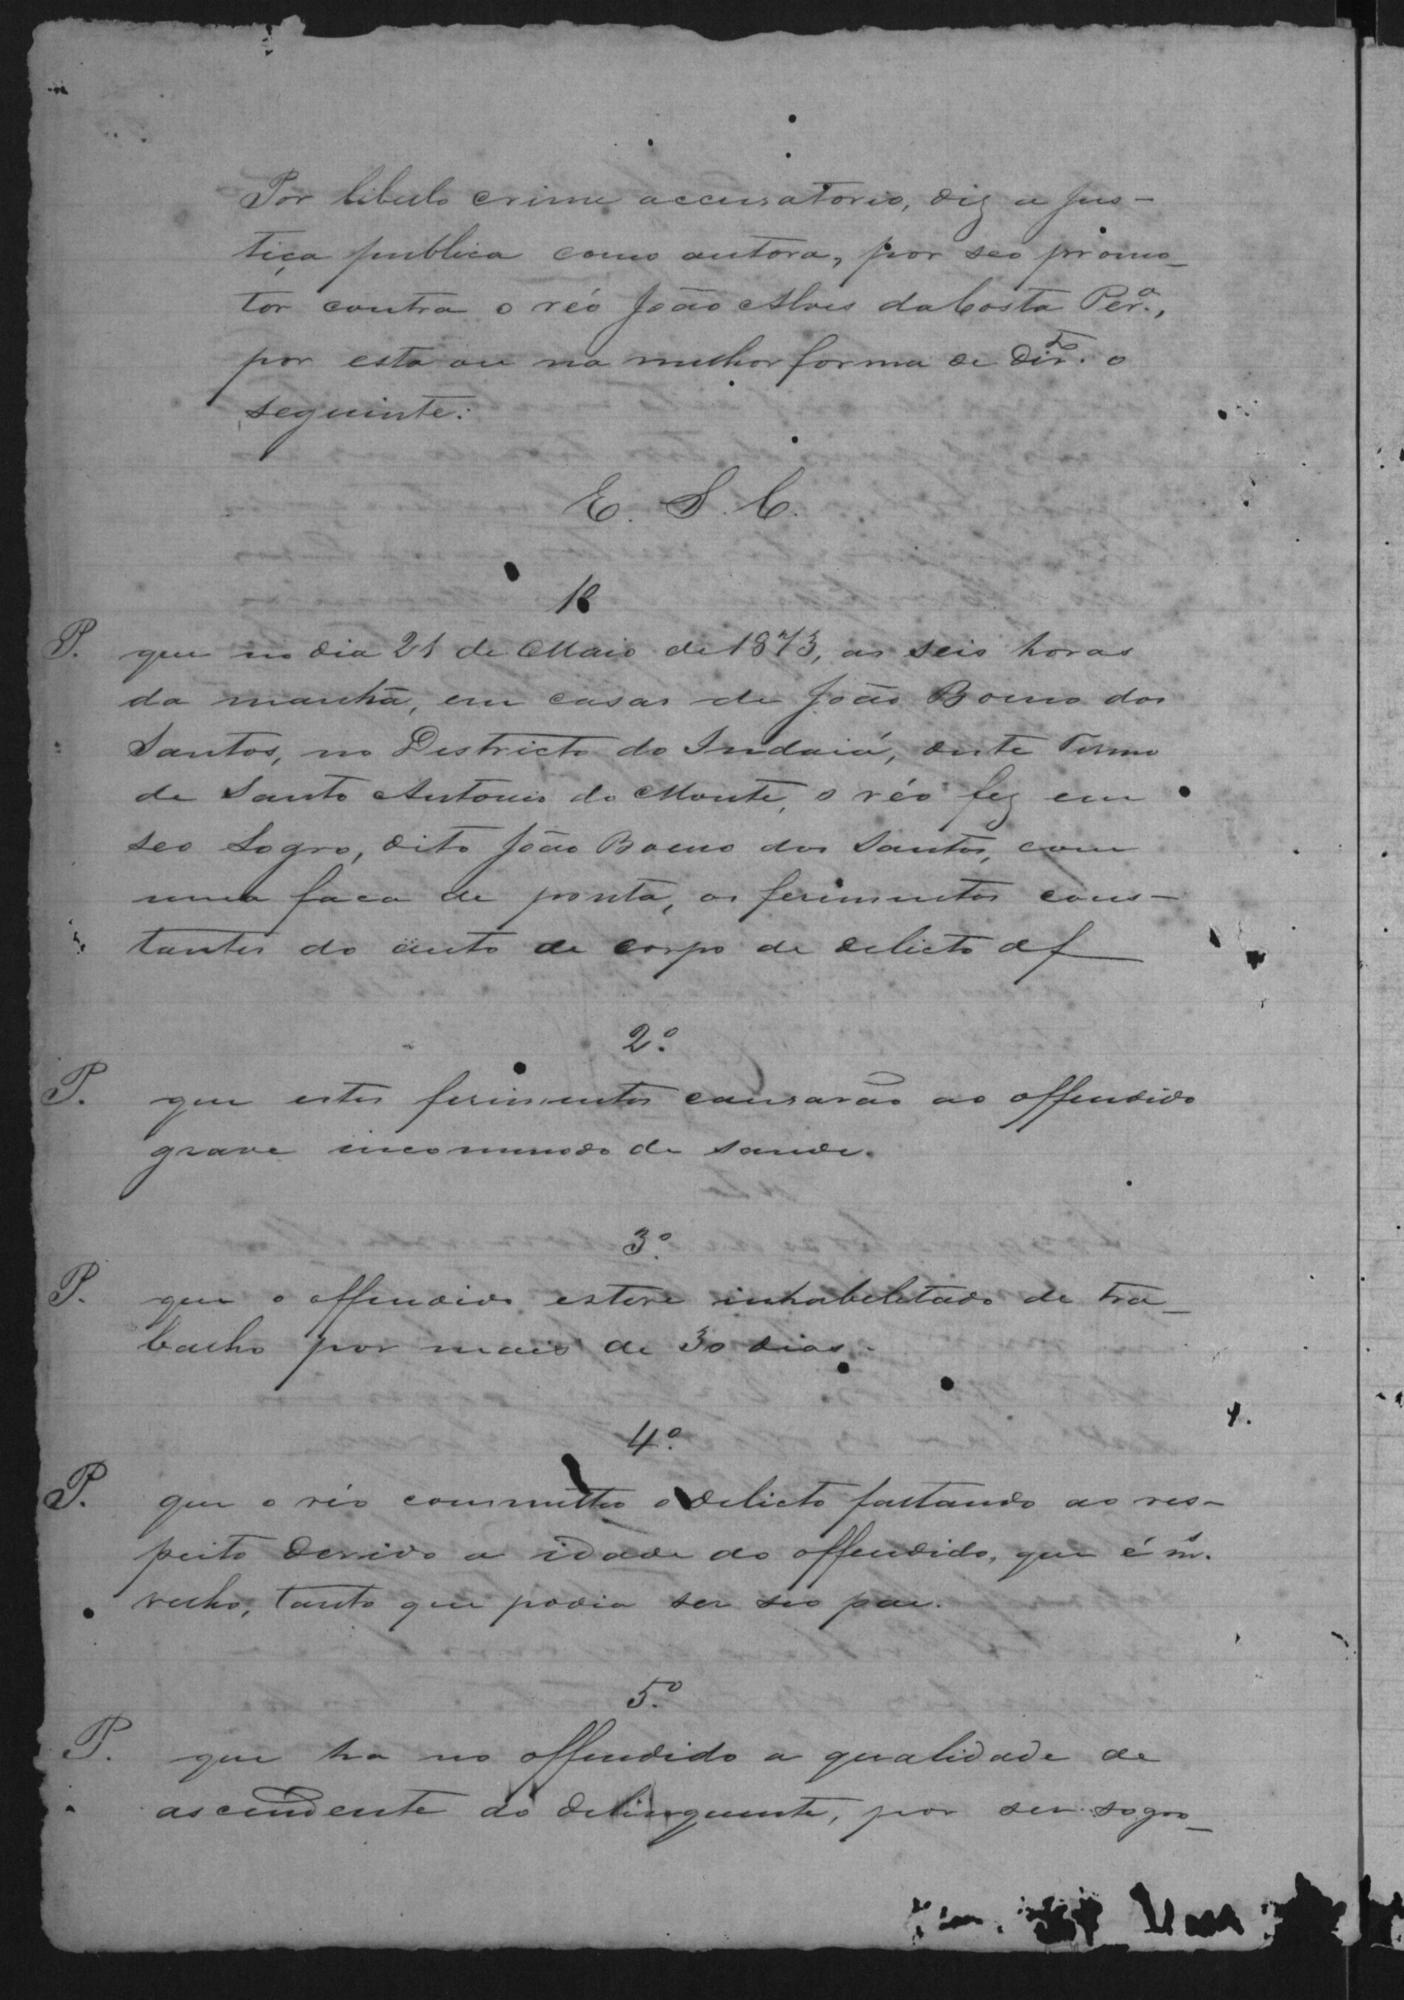 Por libello crime accusatorio, diz a Jus-
tiça publica como autora, por seo promo-
tor contra o réo João Alves da Costa Per.ª,
por esta ou na melhor forma de Dir.to o
seguinte:
E. S. C.
1º
P. que no dia 21 de Maio de 1873, as seis horas
da manhã, em casas de João Boeno dos
Santos, no Districto do Indaiá, deste Termo
de Santo Antonio do Monte, o réo fez em
seo Sogro, dito João Boeno dos Santos, com
uma faca de ponta, os ferimentos cons-
tantes do auto de corpo de delicto af
2º
P. que estes ferimentos causarão ao offendido
grave incommodo de saude.
3º
P. que o offendido esteve inhabelitado de tra-
balho por mais de 30 dias.
4º
P. que o réo commetteo o delicto faltando ao res-
peito devido a idade do offendido, que é m.s
velho, tanto que podia ser seo pae.
5º
P. que ha no offendido a qualidade de
ascendente do delinquente, por ser sogro